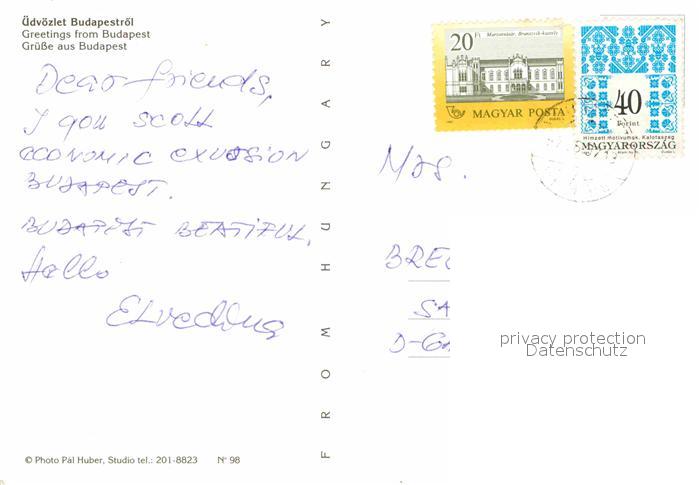 Üdvözlet Budapestről
Greetings from Budapest
Grüße aus Budapest
Dear friends,
I you scoll
economic exussion
BUDAPEST.
BUDAPEST BEATIFUL.
Hallo
FROM HUNGARY
© Photo Pál Huber, Studio tel.: 201-8823 Nº 98
20 Ft
Martonvásár, Brunszvik-kastély
MAGYAR POSTA
40
Forint
Hímzett motívumok, Kalotaszeg
MAGYARORSZÁG
BRE
SA
D-
privacy protection
Datenschutz